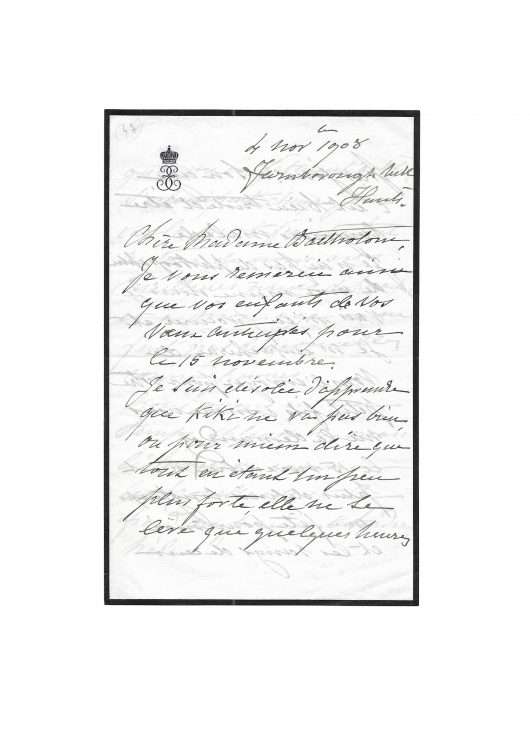 47
4 nov bre 1908
Farnborough Hill
Hants.
Chère Madame Bartholoni,
Je vous remercie ainsi
que vos enfants de vos
vœux anticipés pour
le 15 novembre.
Je suis désolée d'apprendre
que Kiki ne va pas bien,
ou pour mieux dire que
tout en étant un peu
plus forte, elle ne se
lève que quelques heures